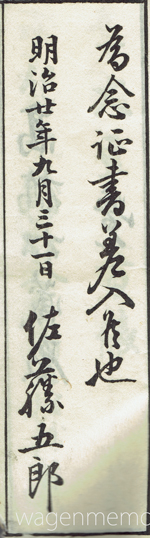 為念証書差入候也
明治廿年九月三十一日 佐藤五郎
wagenmemo